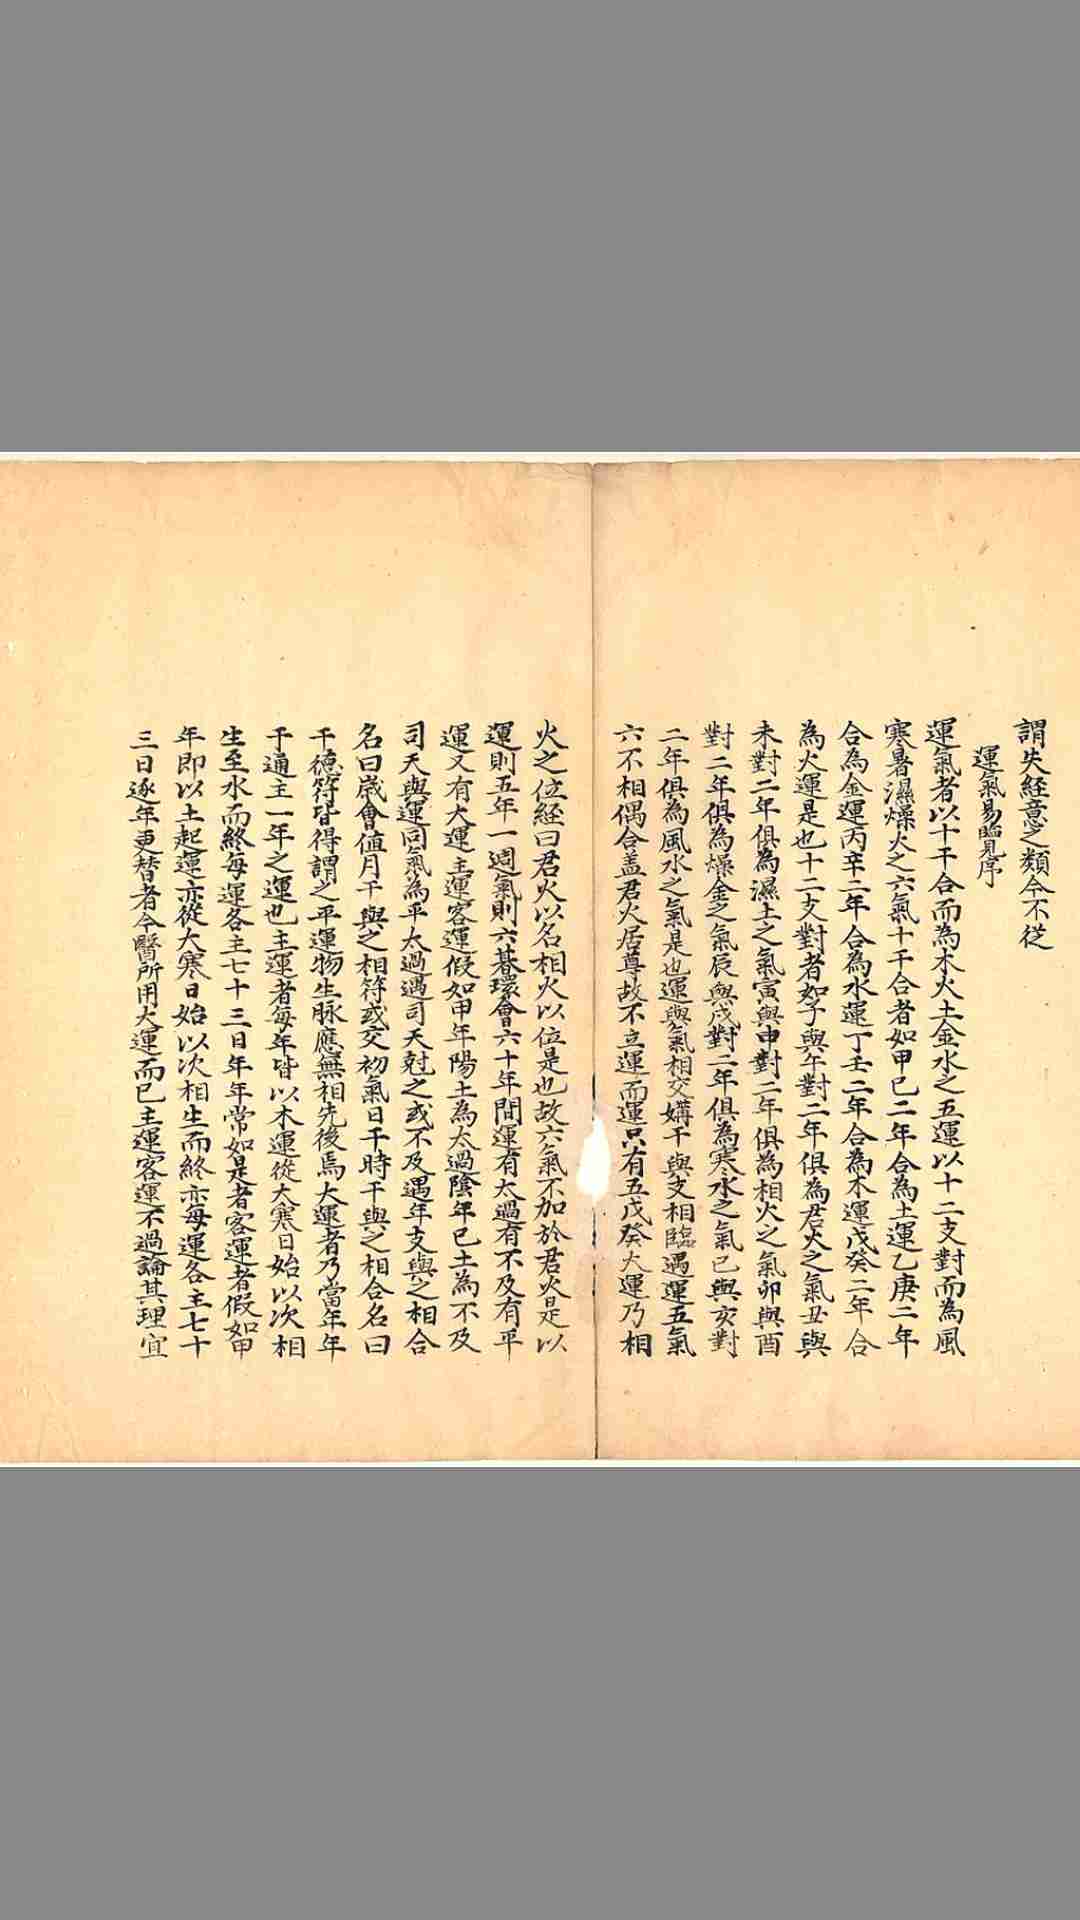 謂失経意之類今不從
運氣易覽序
運氣者以十干合而為木火土金水之五運以十二支對而為風
寒暑濕燥火之六氣十干合者如甲已二年合為土運乙庚二年
合為金運丙辛二年合為水運丁壬二年合為木運戊癸二年合
為火運是也十二支對者如子與午對二年俱為君火之氣丑與
未對二年俱為濕土之氣寅與申對二年俱為相火之氣卯與酉
對二年俱為燥金之氣辰與戌對二年俱為寒水之氣已與亥對
二年俱為風木之氣是也運與氣相交媾干與支相臨遇運五氣
六不相偶合盖君火居尊故不立運而運只有五戊癸大運乃相
火之位経曰君火以名相火以位是也故六氣不加於君火是以
運則五年一週氣則六朞環會六十年間運有太過有不及有平
運又有大運主運客運假如甲年陽土為太過陰年已土為不及
司天與運同氣為平太過遇司天尅之或不及遇年支與之相合
名曰嵗會值月干與之相符或交初氣日干時干與之相合名曰
干德符皆得謂之平運物生脉應無相先後焉大運者乃當年年
干通主一年之運也主運者每年皆以木運從大寒日始以次相
生至水而終每運各主七十三日年年常如是者客運者假如甲
年即以土起運亦從大寒日始以次相生而終亦每運各主七十
三日逐年更替者今醫所用大運而已主運客運不過論其理宜